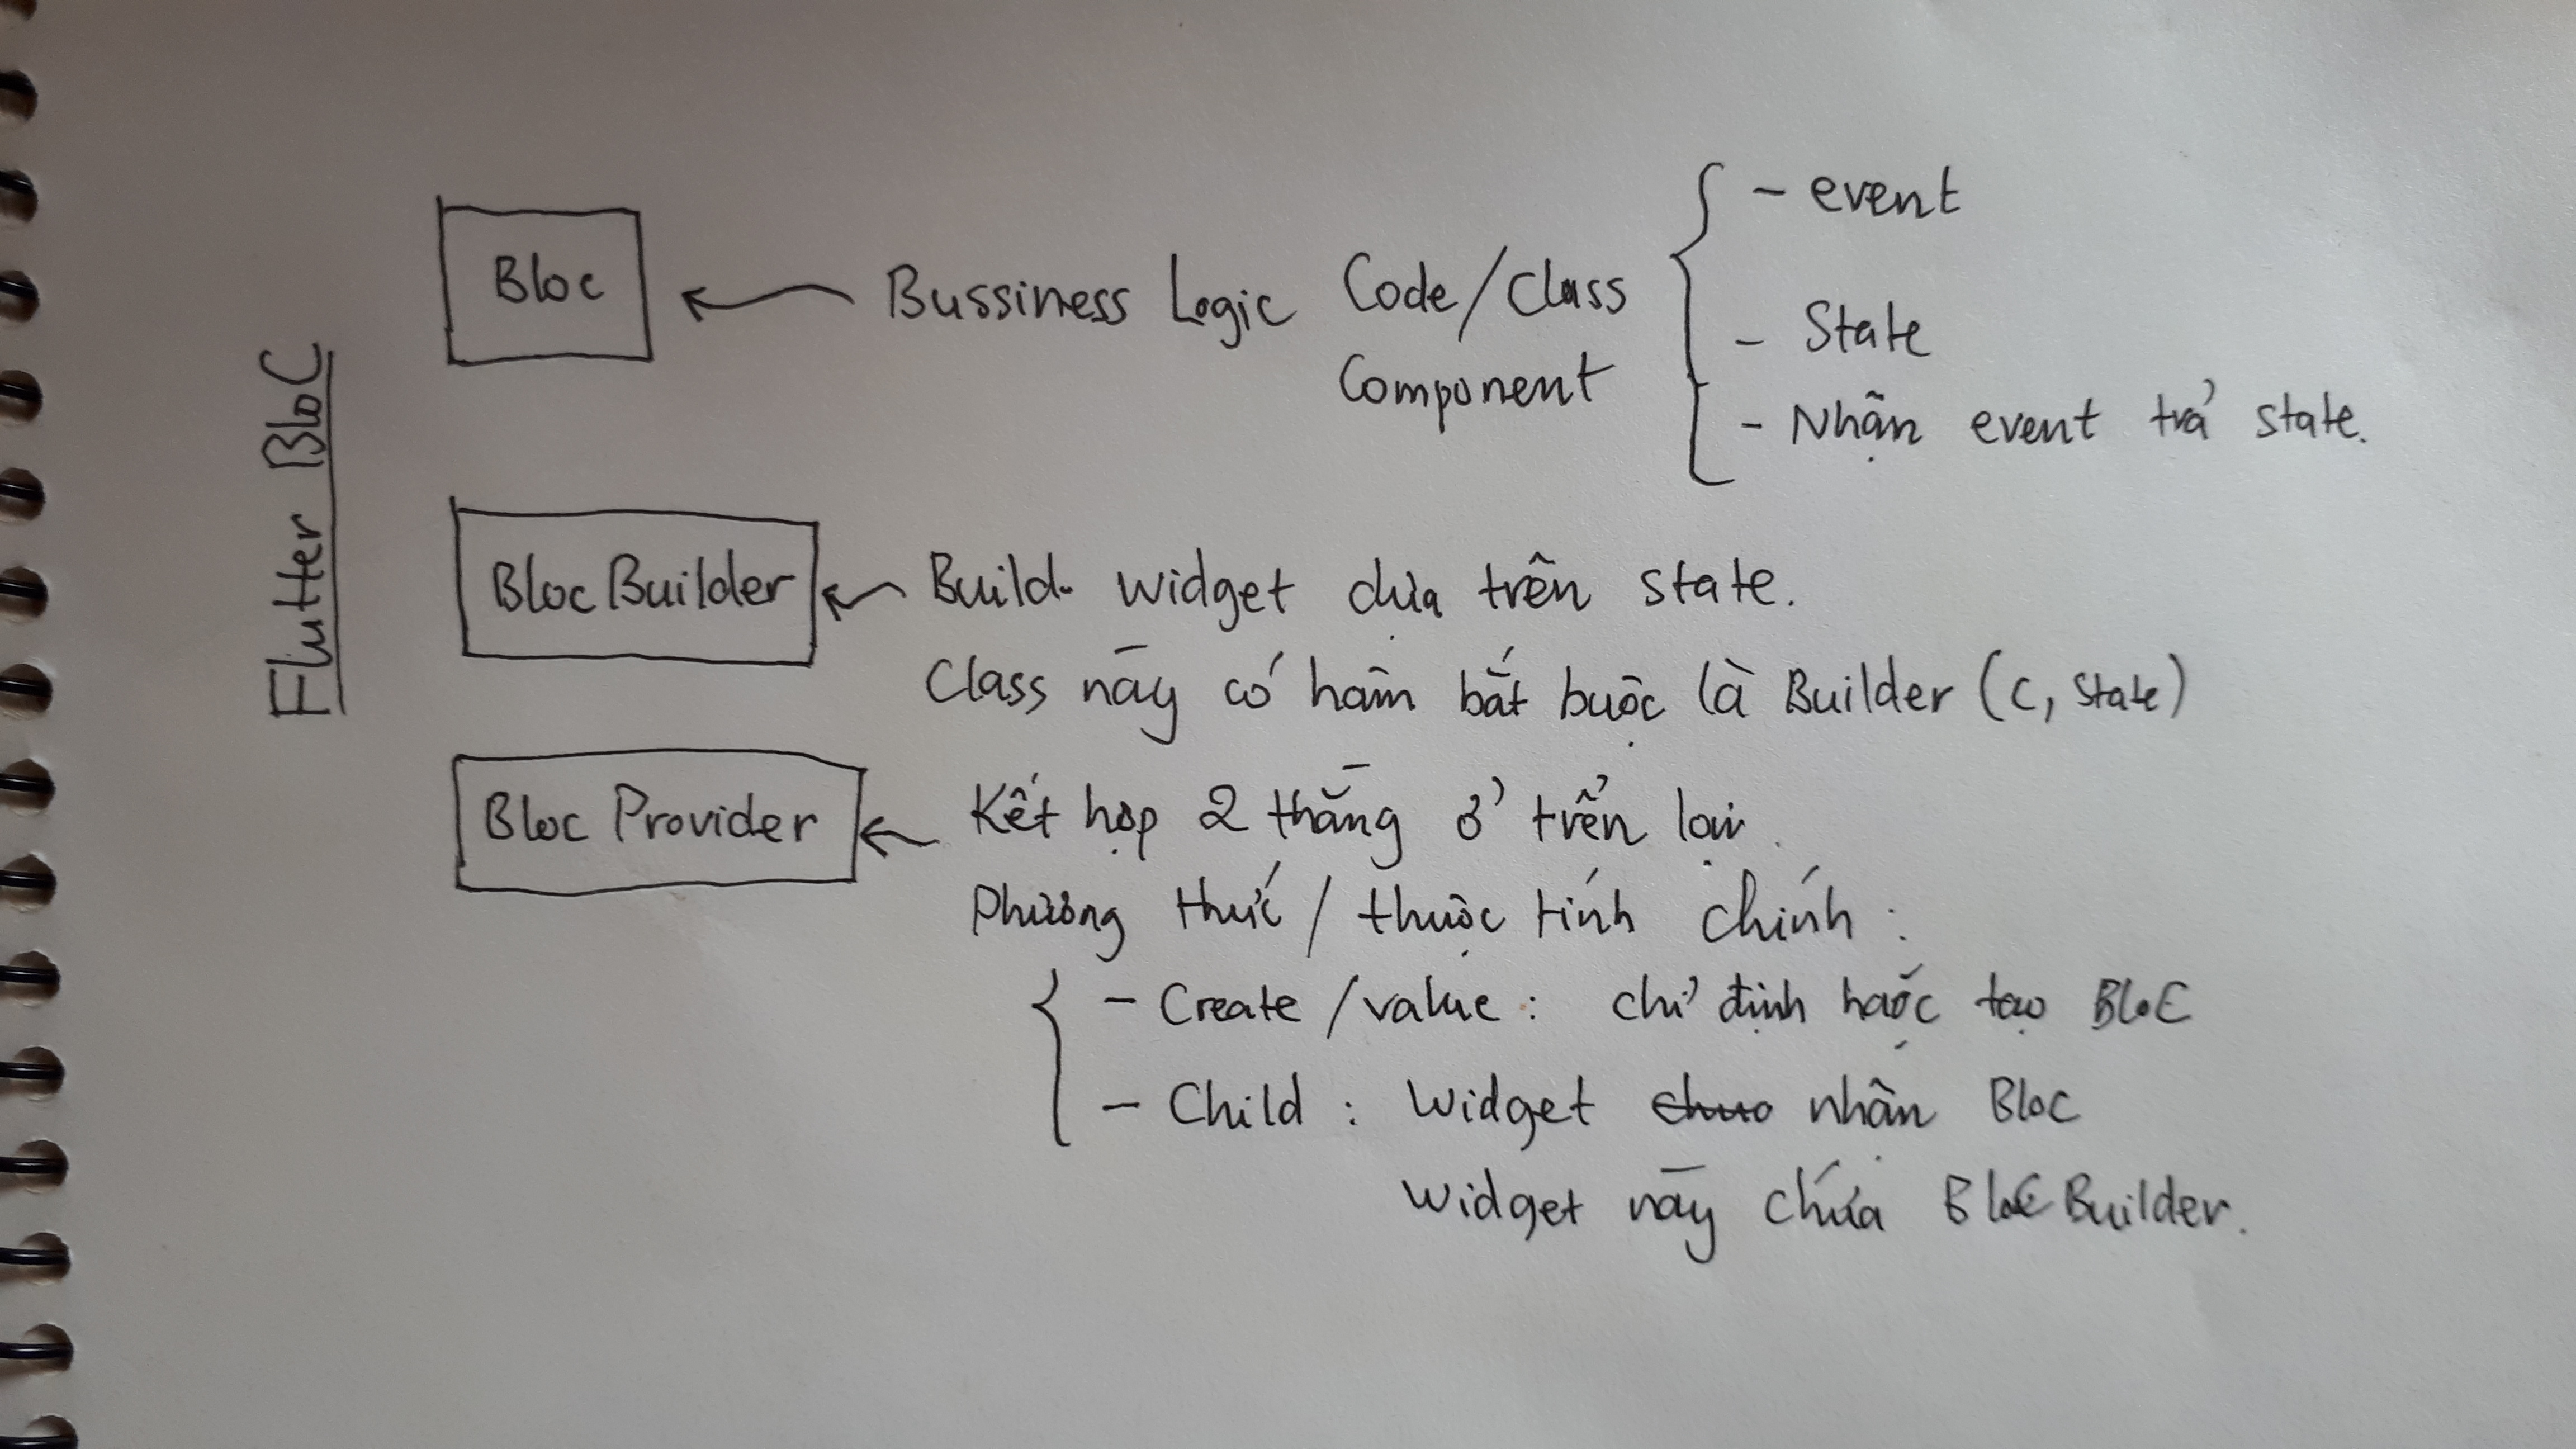 Flutter BloC
Bloc
Bussiness Logic Code/Class
Component
- event
- State
- Nhận event trả state.
Bloc Builder
Build widget dựa trên state.
Class này có hàm bắt buộc là Builder (c, state)
Bloc Provider
Kết hợp 2 thằng ở trển lại.
Phương thức / thuộc tính chính :
- Create /value : chỉ định hoặc tạo BloC
- Child : Widget nhận Bloc
Widget này chứa BloC Builder.